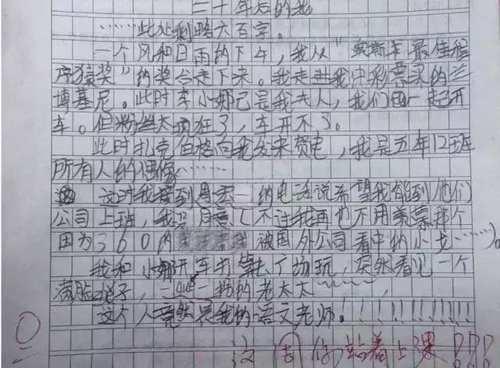 二十年后的我
……此处删略六百字。
一个风和日雨的下午，我从“奥斯车最佳程
序猿奖”的奖台走下来。我走进我中彩票买的兰
博基尼。此时李小娜已是我夫人，我们俩一起开
车。但粉丝太疯狂了，车开不了。
此时扎克伯格向我发来贺电，我是五年12班
所有人的偶像……
这时我接到周宏一的电话说希望我能到他们
公司上班，我只同意（不过我再也不用羡慕那个
因为360的 被国外公司看中的小龙……）。
我和小娜开车去 玩，突然看见一个
满脸 子， 的老太太……，
这个人竟然是我的语文老师！！！！！！！！！！！！
这周你站着上课！！！